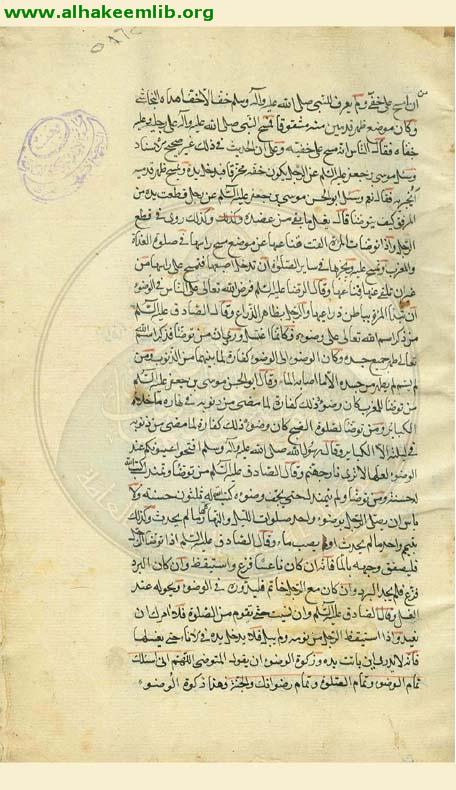 www.alhakeemlib.org
ان امسح على خفى ولم يعرف للنبى صلى الله عليه وآله وسلم خف الا خف اهداه النجاشى
وكان موضع ظهر قدمين منه مشقوقا فمسح النبى صلى الله عليه وآله على رجليه وعليه
خفاه فقال الناس انه مسح على خفيه وعلى ان الحديث فى ذلك غير صحيح الاسناد
وسئل موسى بن جعفر عليه السلام عن الرجل يكون خفه مخرقا فيدخل يده ويمسح ظهر قدميه
ايجزيه فقال نعم وسئل ابو الحسن موسى بن جعفر عليه السلام عن رجل قطعت يده من
المرفق كيف يتوضأ قال يغسل ما بقى من عضده وكذلك روى فى قطع
الرجل واذا توضأت المرأة القت قناعها عن موضع مسح راسها فى صلوة الغداة
والمغرب وتمسح عليه ويجزيها فى ساير الصلوة ان تدخل اصبعها فتمسح على راسها من
غير ان تلقى عنها قناعها وقال الرضا عليه السلام فرض الله تعالى على الناس فى الوضوء
ان تبدأ المرأة بباطن ذراعها والرجل بظاهر الذراع وقال الصادق عليه السلام
من ذكر اسم الله تعالى على وضوئه فكانما اغتسل وروى ان من توضأ فذكر اسم الله
تعالى طهر جميع جسده وكان الوضوء الى الوضوء كفارة لما بينهما من الذنوب ومن
لم يسم لم يطهر من جسده الا ما اصابه الماء وقال ابو الحسن موسى بن جعفر عليه السلام
من توضأ للمغرب كان وضوئه ذلك كفارة لما مضى من ذنوبه فى نهاره ما خلا
الكباير ومن توضأ لصلوة الصبح كان وضوئه ذلك كفارة لما مضى من ذنوبه
فى ليلته الا الكباير وقال رسول الله صلى الله عليه وآله وسلم افتحوا عيونكم عند
الوضوء لعلها لا ترى نار جهنم وقال الصادق عليه السلام من توضأ وتمندل كتبت الله
له حسنة ومن توضأ ولم يتمندل حتى يجف وضوءه كتب الله له ثلثون حسنة ولا
باس ان يصلى الرجل بوضوء واحد صلوات الليل والنهار كلها ما لم يحدث وكذلك
بتيمم واحد ما لم يحدث او يصب ماء وقال الصادق عليه السلام اذا توضأ الرجل
فليصفق وجهه بالماء فانه ان كان ناعسا فزع واستيقظ وان كان البرد
فزع فلم يجد البرد وان كان مع الرجل خاتم فليدوره فى الوضوء ويحوله عند
الغسل وقال الصادق عليه السلام وان نسيت حتى تقوم من الصلوة فلا امرك ان
تعيد واذا استيقظ الرجل من نومه ولم يبل فلا يدخل يده فى الاناء حتى يغسلها
فانه لا يدرى اين باتت يده وزكوة الوضوء ان يقول المتوضى اللهم انى اسئلك
تمام الوضوء وتمام الصلوة وتمام رضوانك والجنة فهذا زكوة الوضوء